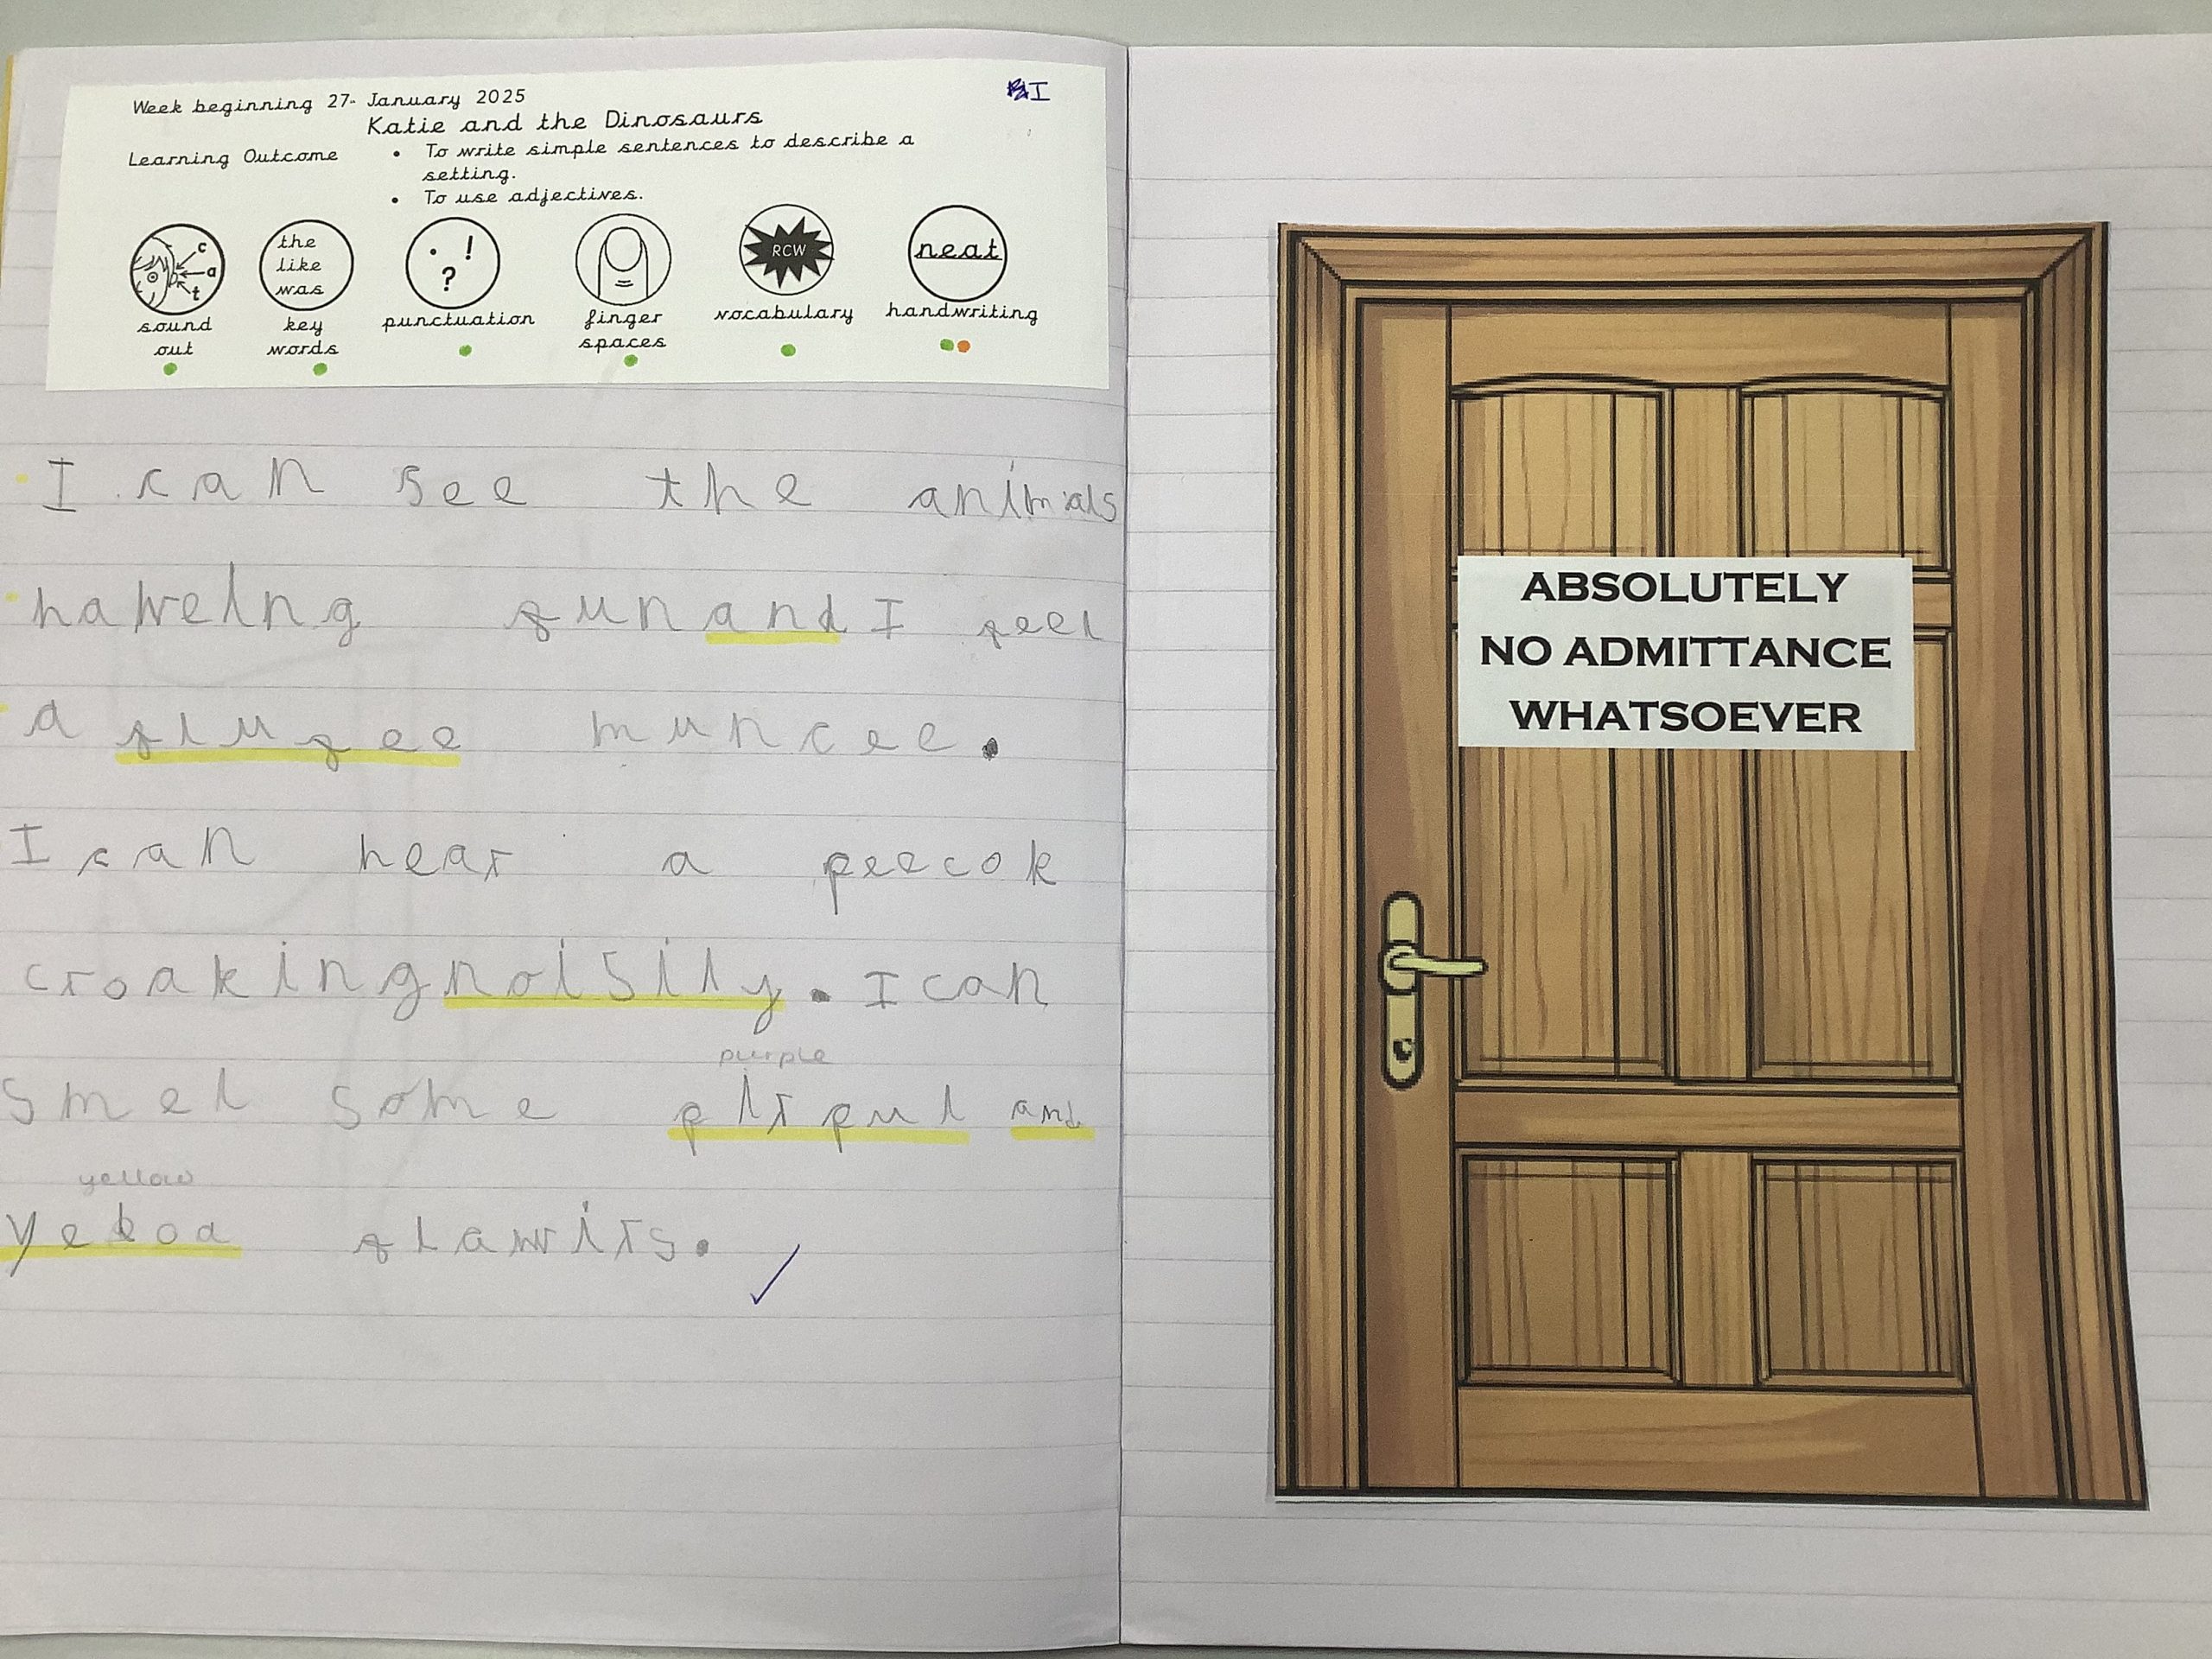 Week beginning 27th January 2025
I
Katie and the Dinosaurs
Learning Outcome
• To write simple sentences to describe a
setting.
• To use adjectives.
c
a
t
the
like
was
. !
?
RCW
neat
sound
out
key
words
punctuation
finger
spaces
vocabulary
handwriting
I can see the animals
haweing fun and I feel
a flufee muncee.
I can hear a peecok
croaking noisily. I can
purple
smel some pirpul and
yellow
yeloa flawirs.
ABSOLUTELY
NO ADMITTANCE
WHATSOEVER